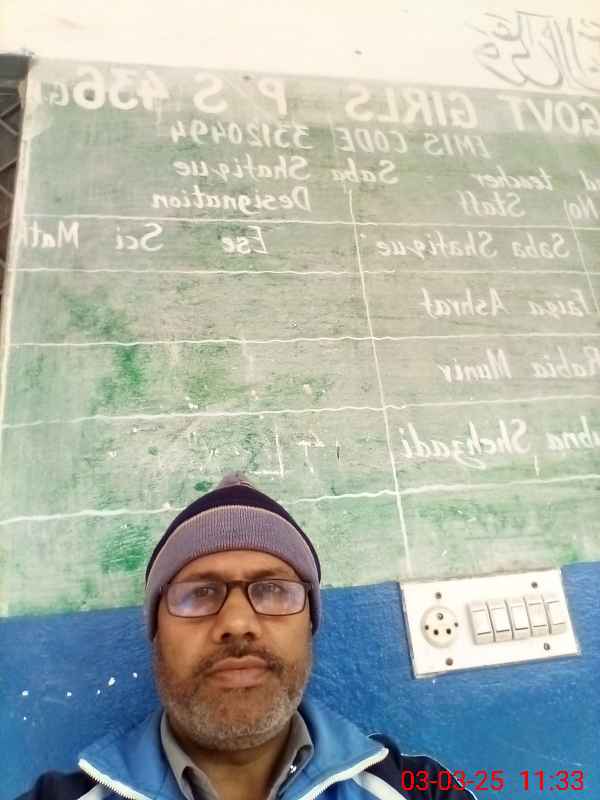 GOVT GIRLS P/S 436 G
EMIS CODE 33120494
teacher Saba Shafique
No Staff Designation
Saba Shafique Ese Sci Math
Faiqa Ashraf
Rabia Munir
Shehzadi
03-03-25 11:33